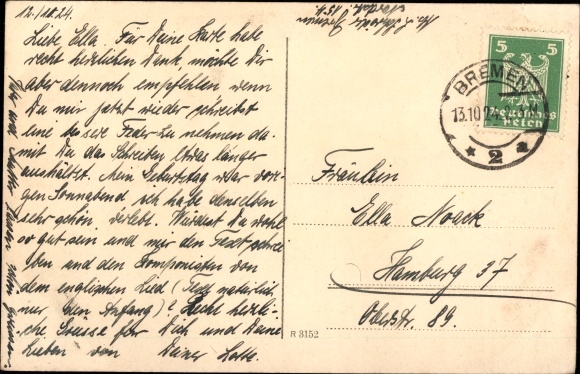 12./10.24.
Liebe Ella. Für Deine Karte habe
recht herzlichen Dank, möchte Dir
aber dennoch empfehlen wenn
Du mir jetzt wieder schreibst
eine bessere Feder zu nehmen da-
mit Du das Schreiben etwas länger
aushältst. Mein Geburtstag war vori-
gen Sonnabend ich habe denselben
sehr schön verlebt. Würdest Du wohl
so gut sein und mir den Text schrei-
ben und den Komponisten von
dem englischen Lied (Text natürlich
nur den Anfang)? Recht herzli-
che Grüsse für Dich und Deine
Lieben von Deiner Lotte.
Bremen
5 5
Deutsches
Reich
BREMEN
13.10.24
* 2 a
Fräulein
Ella Noack
Hamburg 37
Oberstr. 89.
R 3152